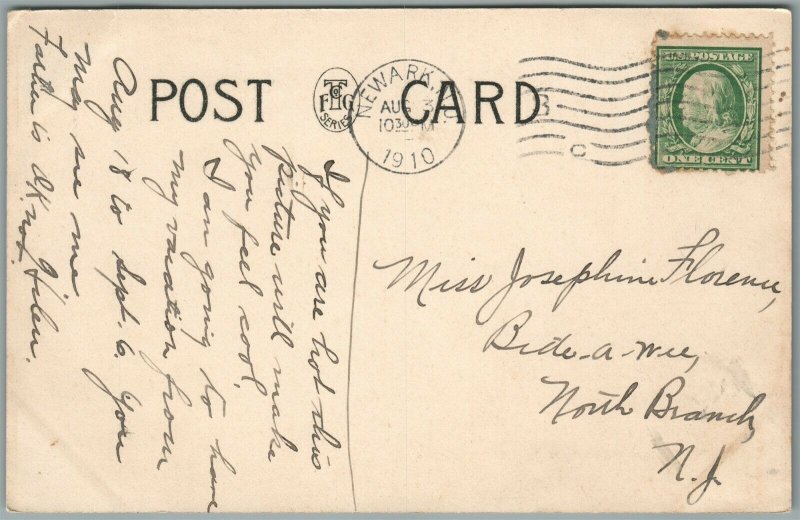 POST CARD
TCo
FHG
SERIES
NEWARK, N.J.
AUG 3
1030 M
1910
B
C
U.S. POSTAGE
ONE CENT
If you are hot this
picture will make
you feel cool.
I am going to have
my vacation from
Aug 18 to Sept. 6. You
may see me.
Father is OK now. Helen.
Miss Josephine Florence,
Bide-a-wee,
North Branch,
N.J.